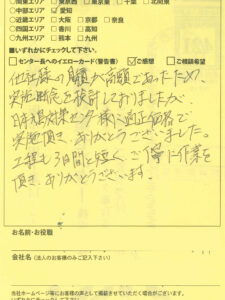 □中部エリア ☑愛知
□近畿エリア □大阪 □京都 □奈良
□四国エリア □香川 □高知
□九州エリア □熊本 □九州
■いずれかにチェックして下さい。
□センター長へのイエローカード(警告書) ☑ご感想 □ご相談希望
他社様の見積が高額であったため、
実施断念を検討しておりましたが、
日本 対策センター様に適正価格で
実施頂き、ありがとうございました。
工程も3日間と短く、ご丁寧に作業を
頂き、ありがとうございます。
お名前・お役職
会社名(法人のお客様のみご記入下さい)
当社ホームページ等にお客様の声として掲載させていただく場合がございます。
いずれかにチェックして下さい。